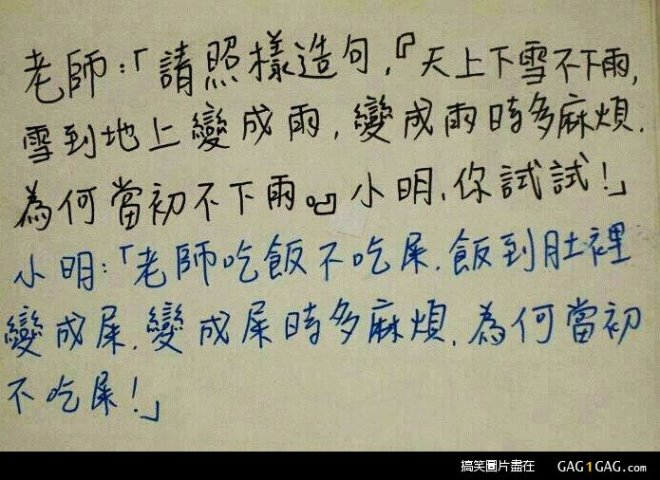 老師:「請照樣造句,『天上下雪不下雨,
雪到地上變成雨,變成雨時多麻煩.
為何當初不下雨。』小明,你試試!」
小明:「老師吃飯不吃屎.飯到肚裡
變成屎.變成屎時多麻煩.為何當初
不吃屎!」
搞笑圖片盡在 GAG1GAG.com